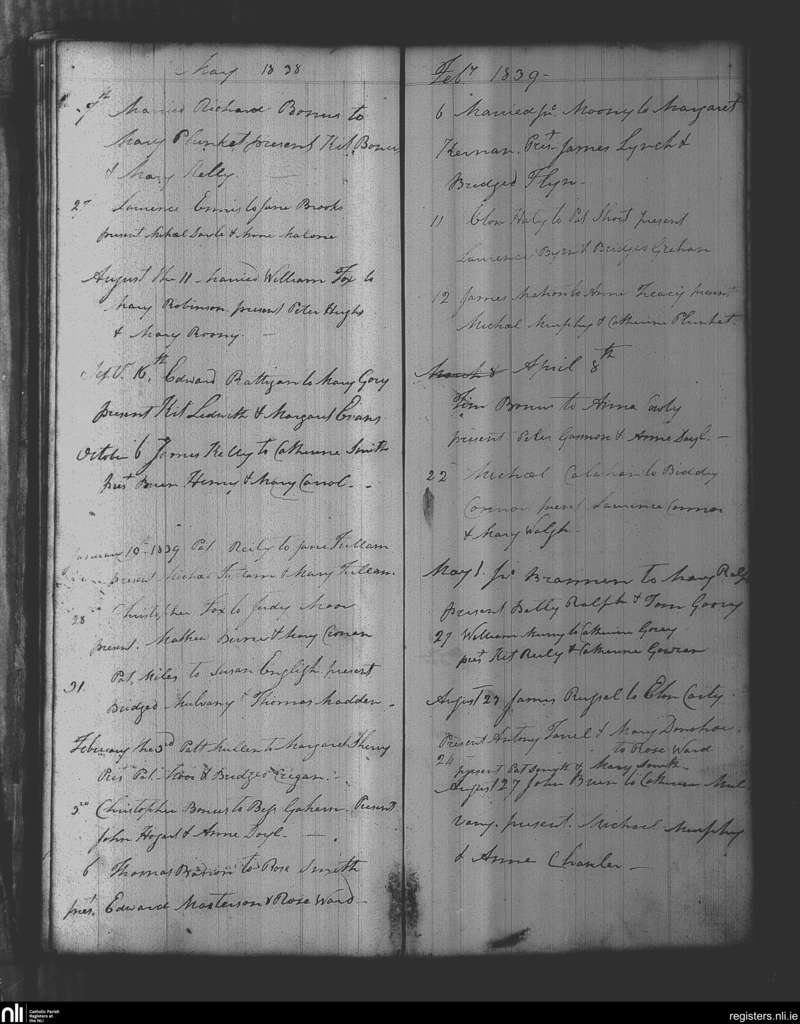 May 1838
7th Married Richard Bonus to
Mary Plunket present Kit Bonus
& Mary Kelly.
27 Laurence Ennis to Jane Brooks
present Michal Doyle & Anne Malone
August the 11 married William Fox to
Mary Robinson present Peter Hughs
& Mary Roony.
Sept. 16th Edward Rattigan to Mary Gory
present Kit Ledwith & Margaret Evans
October 6 James Kelly to Catherine Smith
prest Henry & Mary Carrol
January 19th 1839 Pat Reily to Jane
present & Mary
28 Christopher Fox to Moor
present. Mathew & Mary Cronan
31 Pat Miles to Susan English present
Bridged Mulvany Thomas Madden
February the 3d Patt Mullen to Margaret
Prest Pat & Bridged
5 Christopher Bonus to Bess Graham Present
John Hogart & Anne Doyl
6 Thomas to Rose Smith
prest. Edward Masterson & Rose Ward
Feby 1839
6 Married Jno. Moony to Margaret
Kernan. Prest James Lynch &
Bridged Flyn
11 to Pat Short present
Laurence Byrn & Bridget
12 James Mahon to Anne Treacy present
Michal Murphy & Catherine Plunket
March 8 April 8th
Tim Bonus to Anna
present Peter Gannon & Anne Doyl
22 Michael Calahan to Biddy
Connor present Laurence Connor
& Mary Walsh
May 1. Jno Brannin to Mary Ralph
present Betty Ralph & Tom Goory
27 William to Catherine Gorey
prest Kit Reily & Catherine
August 23 James Russel to
Present Antony Farrel & Mary Donohoe
24 to Rose Ward
present Pat Smyth & Mary Smith
August 27 John to Catherine Mul
vany. present. Michael Murphy
& Anne
nli
Catholic Parish
Registers at
the NLI
registers.nli.ie